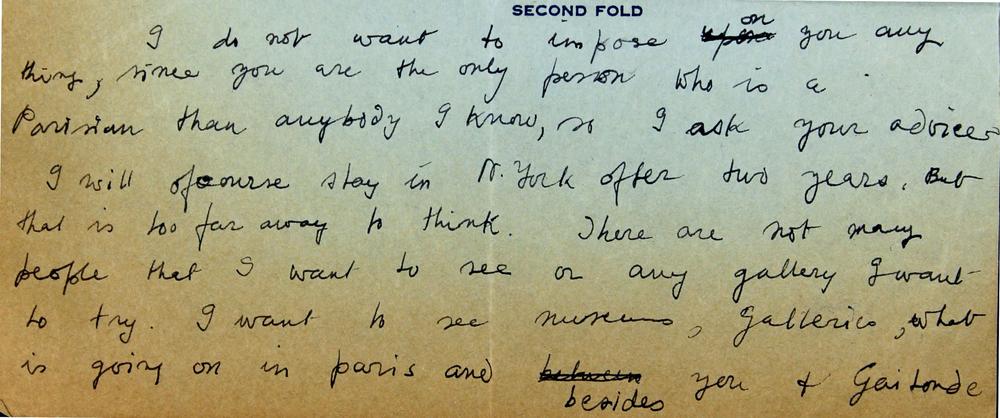 SECOND FOLD
I do not want to impose on you any
thing, since you are the only person who is a
Parisian than anybody I know, so I ask your advices
I will ofcourse stay in N. York after two years. But
that is too far away to think. There are not many
people that I want to see or any gallery I want
to try. I want to see museums, Galleries, what
is going on in paris and you & Gaitonde
besides